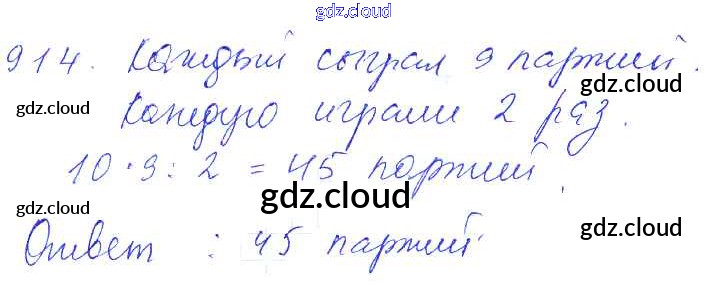 gdz.cloud
914. Каждый сыграл 9 партий.
gdz.cloud gdz.cloud
Каждую играли 2 раз.
10·9:2 = 45 партий.
gdz.cloud gdz.cloud
gdz.cloud
Ответ : 45 партий